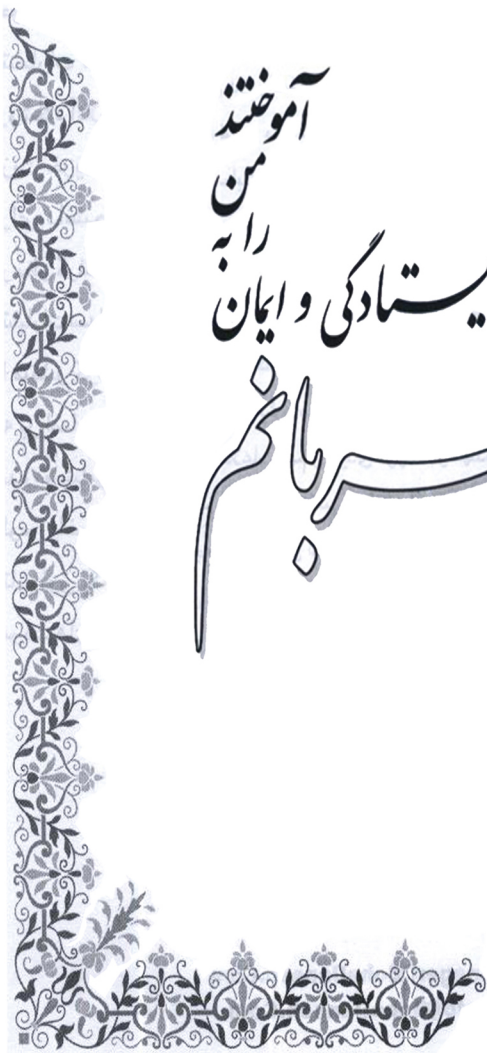 آموختند
من
را به
یستادگی و ایمان
ربانم